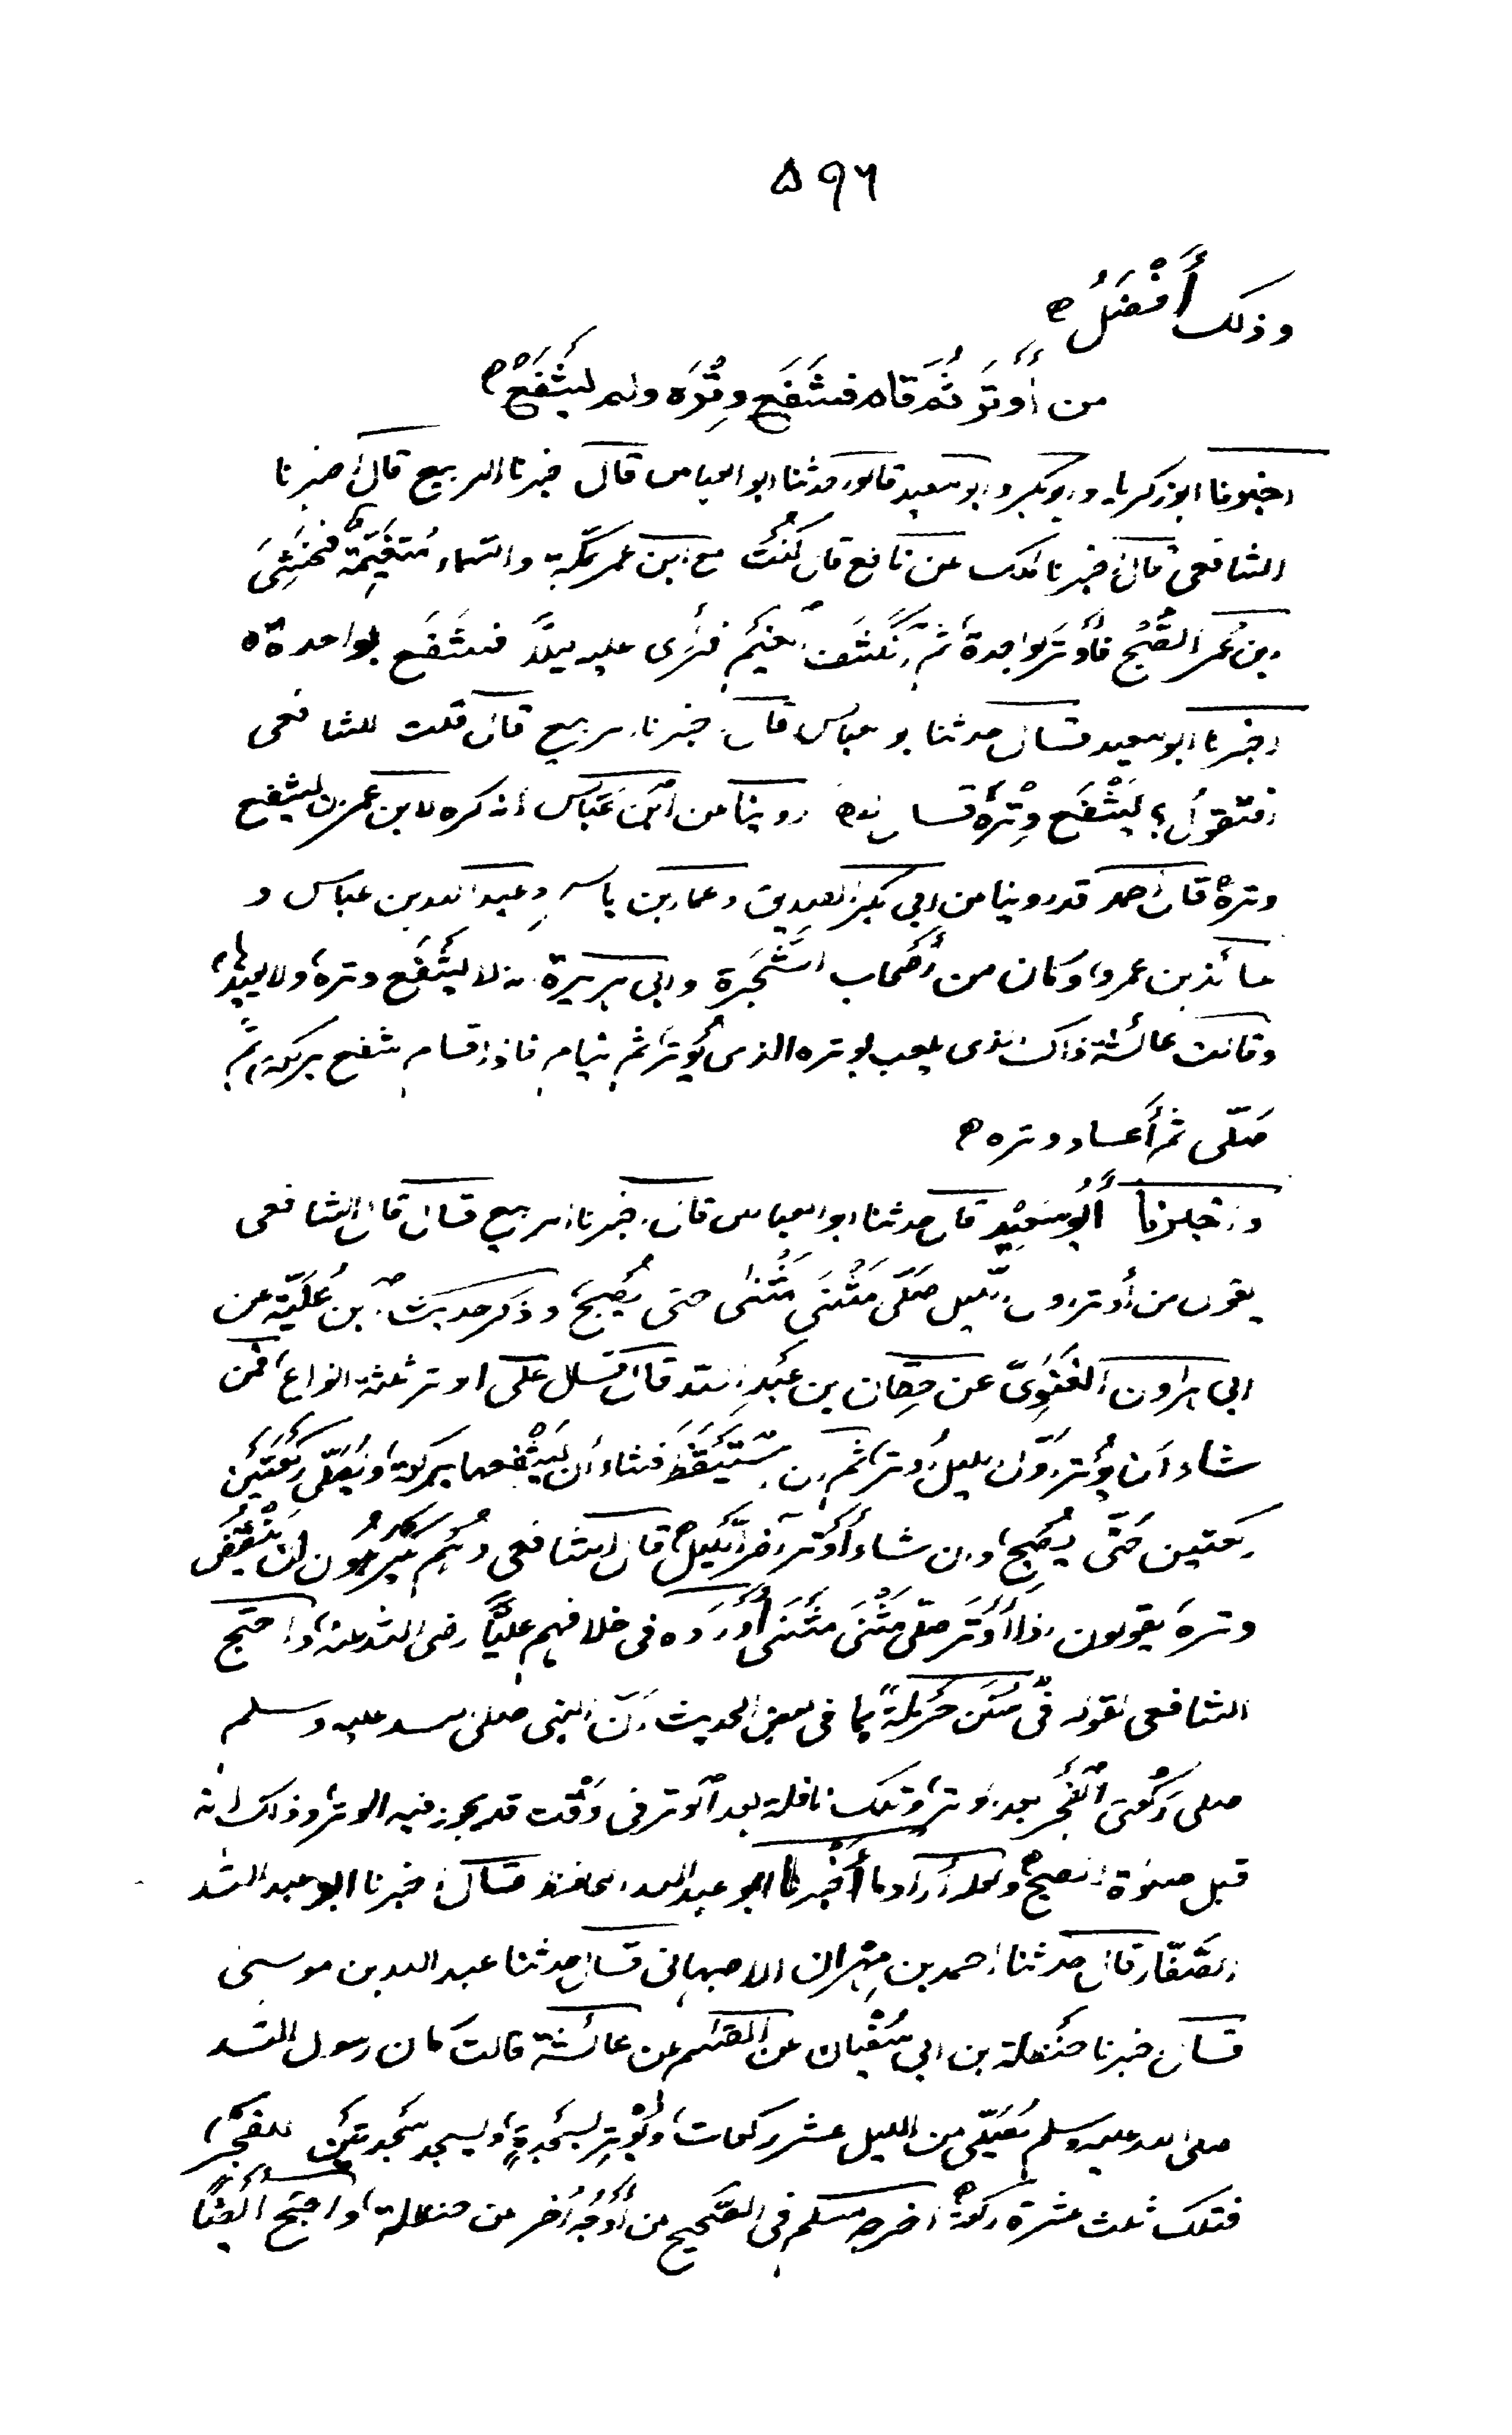 ٥٩٦
وذلك أَفْضَلُ
من أَوْتَرَ ثُمَّ قام فشَفَعَ وِتْرَه ولم يَشْفَعْ
اخبرنا ابو زكريا وابو بكر وابو سعيد قالوا حدثنا ابو العباس قال اخبرنا الربيع قال اخبرنا
الشافعي قال اخبرنا مالك عن نافع قال كُنْتُ مع ابن عمر بمكة والسماء مُتَغَيِّمَةٌ فخَشِيَ
ابن عُمَر الصُّبْحَ فأَوْتَرَ بواحِدة ثُمَّ انْكَشَفَ الغَيْمُ فَرَأى عليه ليلًا فشَفَعَ بواحدة
اخبرنا ابو سعيد قال حدثنا ابو العباس قال اخبرنا الربيع قال قلت للشافعي
افتقول يَشْفَعُ وِتْرَه قال روينا عن ابْنِ عَبَّاس انه كره لابن عمر ان يشفع
وتره قال احمد قد روينا عن ابي بكر الصديق وعمار بن ياسر وعبد الله بن عباس و
عائذ بن عمرو وكان من أَصْحَاب الشَّجَرَة وابي هريرة انه لا يَشْفَع وتره ولا يعيد
وقالت عائشة ذاك الذي يلعب بوتره الذي يُوتِر ثم ينام فاذا قام شفع بركعة ثم
صَلّى ثم أَعاد وتره
واخبرنا أَبُو سَعِيْدٍ قال حدثنا ابو العباس قال اخبرنا الربيع قال قال الشافعي
يقول من أوتر اول الليل صَلَّى مَثْنَى مَثْنَى حتى يُصْبِحَ وذكر حديث ابن عُلَيَّة عن
ابي هارون الغَنَوِيّ عن حِطَّان بن عَبْدِ الله قال قال علي الوتر ثلثة انواع فَمَن
شاء أن يُوتِر أَوَّلَ الليل أوتر ثم ان اسْتَيْقَظَ فشاء أن يَشْفَعها بركعة ويُصَلّي رَكْعَتَيْن
ركعتين حَتَّى يُصْبِحَ وان شاء أَوْتَر آخر اللَّيْل قال الشافعي وهُم يَكْرَهُون ان يَنْقُضَ
وتره يقولون إذا أَوْتَرَ صلّى مَثْنَى مَثْنَى أَوْرَدَه في خلافهم عليًّا رضى الله عنه واحتج
الشافعي لقوله في سُنَن حَرْمَلةَ بما في بعض الحديث أنّ النبي صلى الله عليه وسلم
صلى رَكْعَتَي الفَجْر بعد الوتر وتلك نافلة بعد الوتر في وَقْت قد يجوز فيه الوتر وذلك انه
قبل صلوة الصبح ولعله أراد ما أَخْبرنا ابو عبد الله الحافظ قال اخبرنا ابو عبد الله
الصَّفّار قال حدثنا احمد بن مِهْران الاصبهاني قال حدثنا عبد الله بن موسى
قال اخبرنا حَنْظَلة بن ابي سُفْيان عن القسم عن عائشة قالت كان رسول الله
صلى الله عليه وسلم يُصَلِّي من الليل عشر ركعات ويُوْتِر بسَجْدةٍ ويسجد سَجْدتَين للفجر
فتلك ثلث عشرة ركعة اخرجه مسلم في الصَّحيح من أَوْجُهٍ أُخَر عن حنظلة واحتج ايضًا